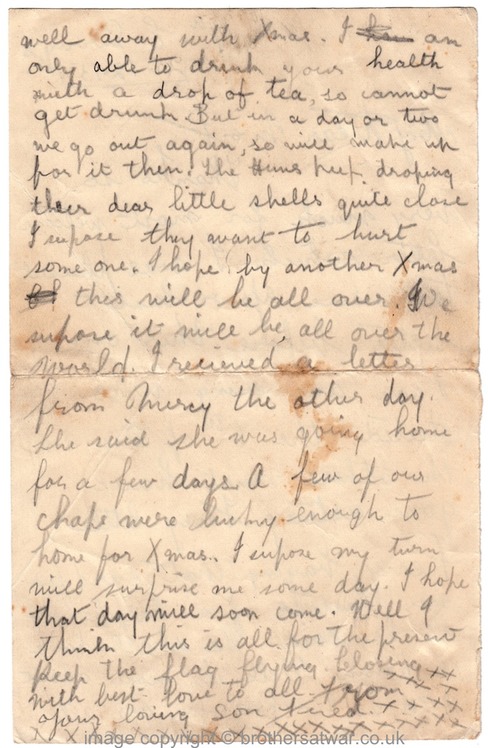 well away with Xmas. I am
only able to drink your health
with a drop of tea, so cannot
get drunk. But in a day or two
we go out again, so will make up
for it then. The Huns keep droping
their dear little shells quite close
I supose they want to hurt
some one. I hope by another Xmas
this will be all over. We
supose it will be all over the
world. I recieved a letter
from Mercy the other day.
She said she was going home
for a few days. A few of our
chaps were lucky enough to
home for Xmas. I supose my turn
will surprise me some day. I hope
that day will soon come. Well I
think this is all for the present
Keep the flag flying. Closing xx
with best love to all. From xxxx
your loving Son Fred. xxxxxxx
image copyright © brothersatwar.co.uk